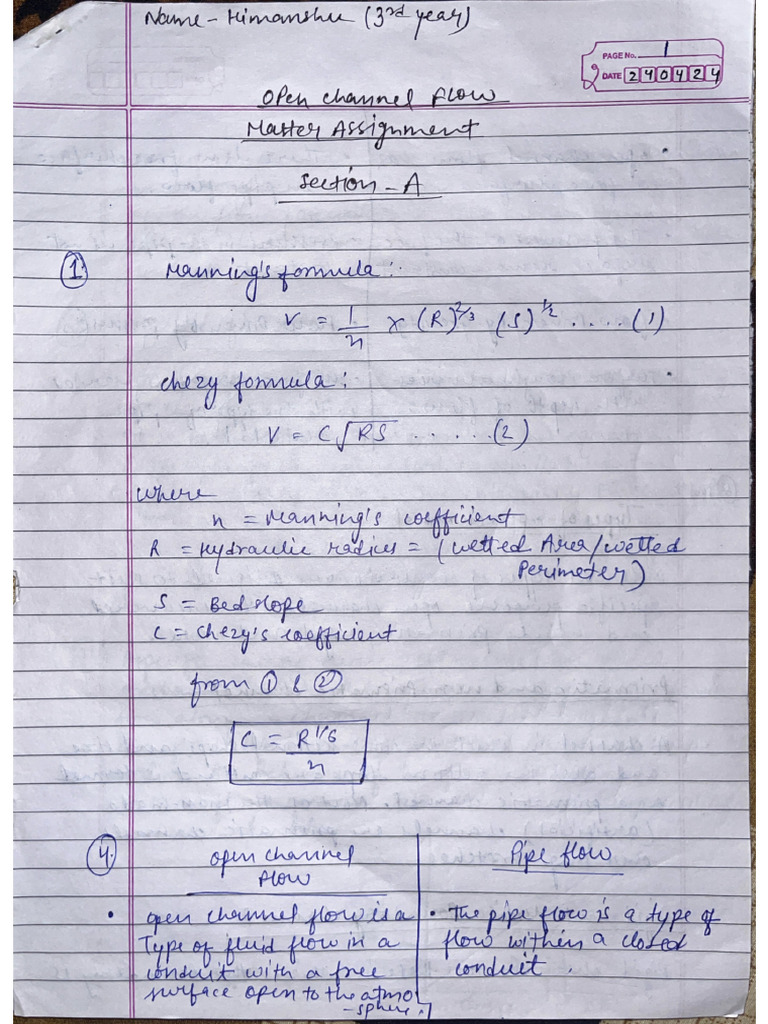 Name - Himanshu (3rd year)
PAGE No. 1
DATE 240424
Open channel flow
Master Assignment
Section - A
1. Manning's formula:
V = 1/n x (R)^2/3 (S)^1/2 ..... (1)
chezy formula:
V = C√RS ...... (2)
where
n = Manning's coefficient
R = Hydraulic radius = (wetted Area/wetted
Perimeter)
S = Bed slope
C = Chezy's coefficient
from ① & ②
C = R^1/6 / n
4. open channel
flow
Pipe flow
• open channel flow is a
Type of fluid flow in a
conduit with a free
surface open to the atmo
-sphere.
• The pipe flow is a type of
flow within a closed
conduit.